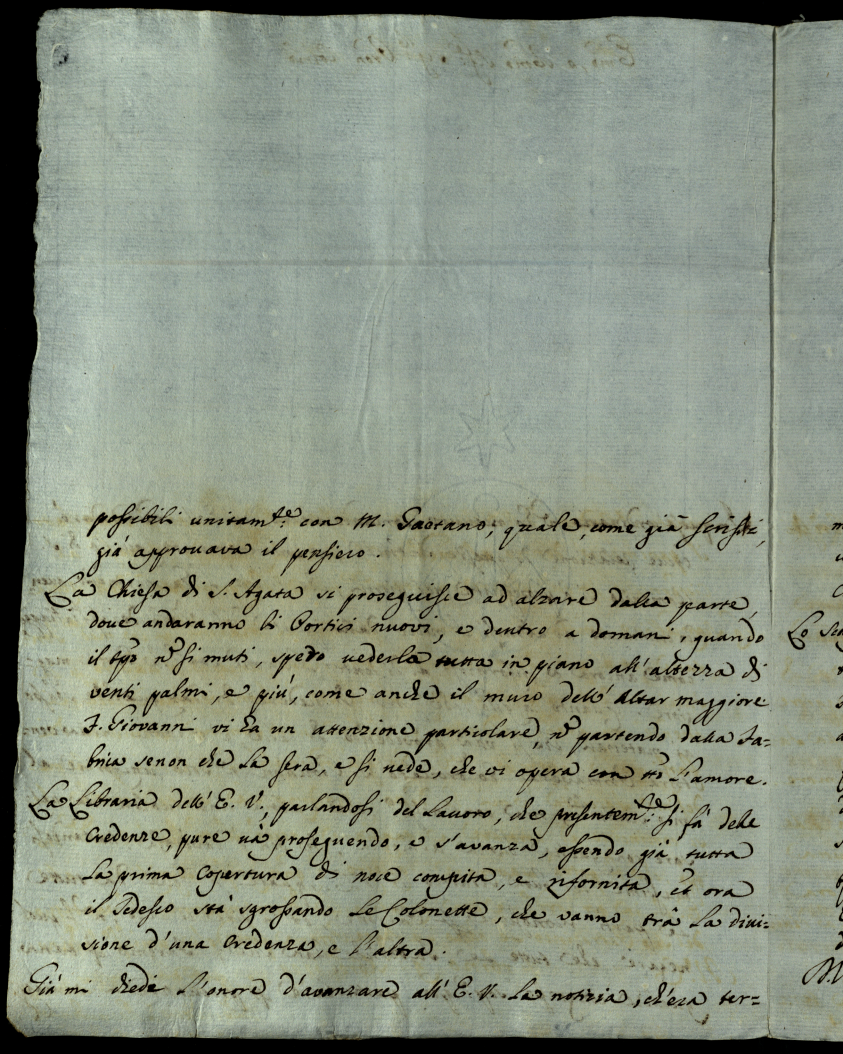 possibili unitam.te con M. Gaetano, quale, come già scrissi,
già approuaua il pensiero.
La Chiesa di S. Agata si proseguisce ad alzare dalla parte,
doue andaranno li Portici nuovi, e dentro a domani, quando
il tpo nõ si muti, spero uederla tutta in piano all'altezza di
venti palmi, e più, come anche il muro dell'Altar maggiore
F. Giovanni vi ha un attenzione particolare, nõ partendo dalla Fa=
brica senon che la sera, e si uede, che vi opera con tto l'amore.
La Libraria dell'E. V., parlandosi del Lauoro, che presentem.te si fà delle
Credenze, pure uà proseguendo, e s'auanza, essendo già tutta
la prima copertura di noce compita, e rifornita, et ora
il Tedesco stà sgrossando le Colonette, che vanno trà la diui=
sione d'una Credenza, e l'altra.
Già mi diedi l'onore d'avanzare all'E. V. la notizia, ch'era ter=